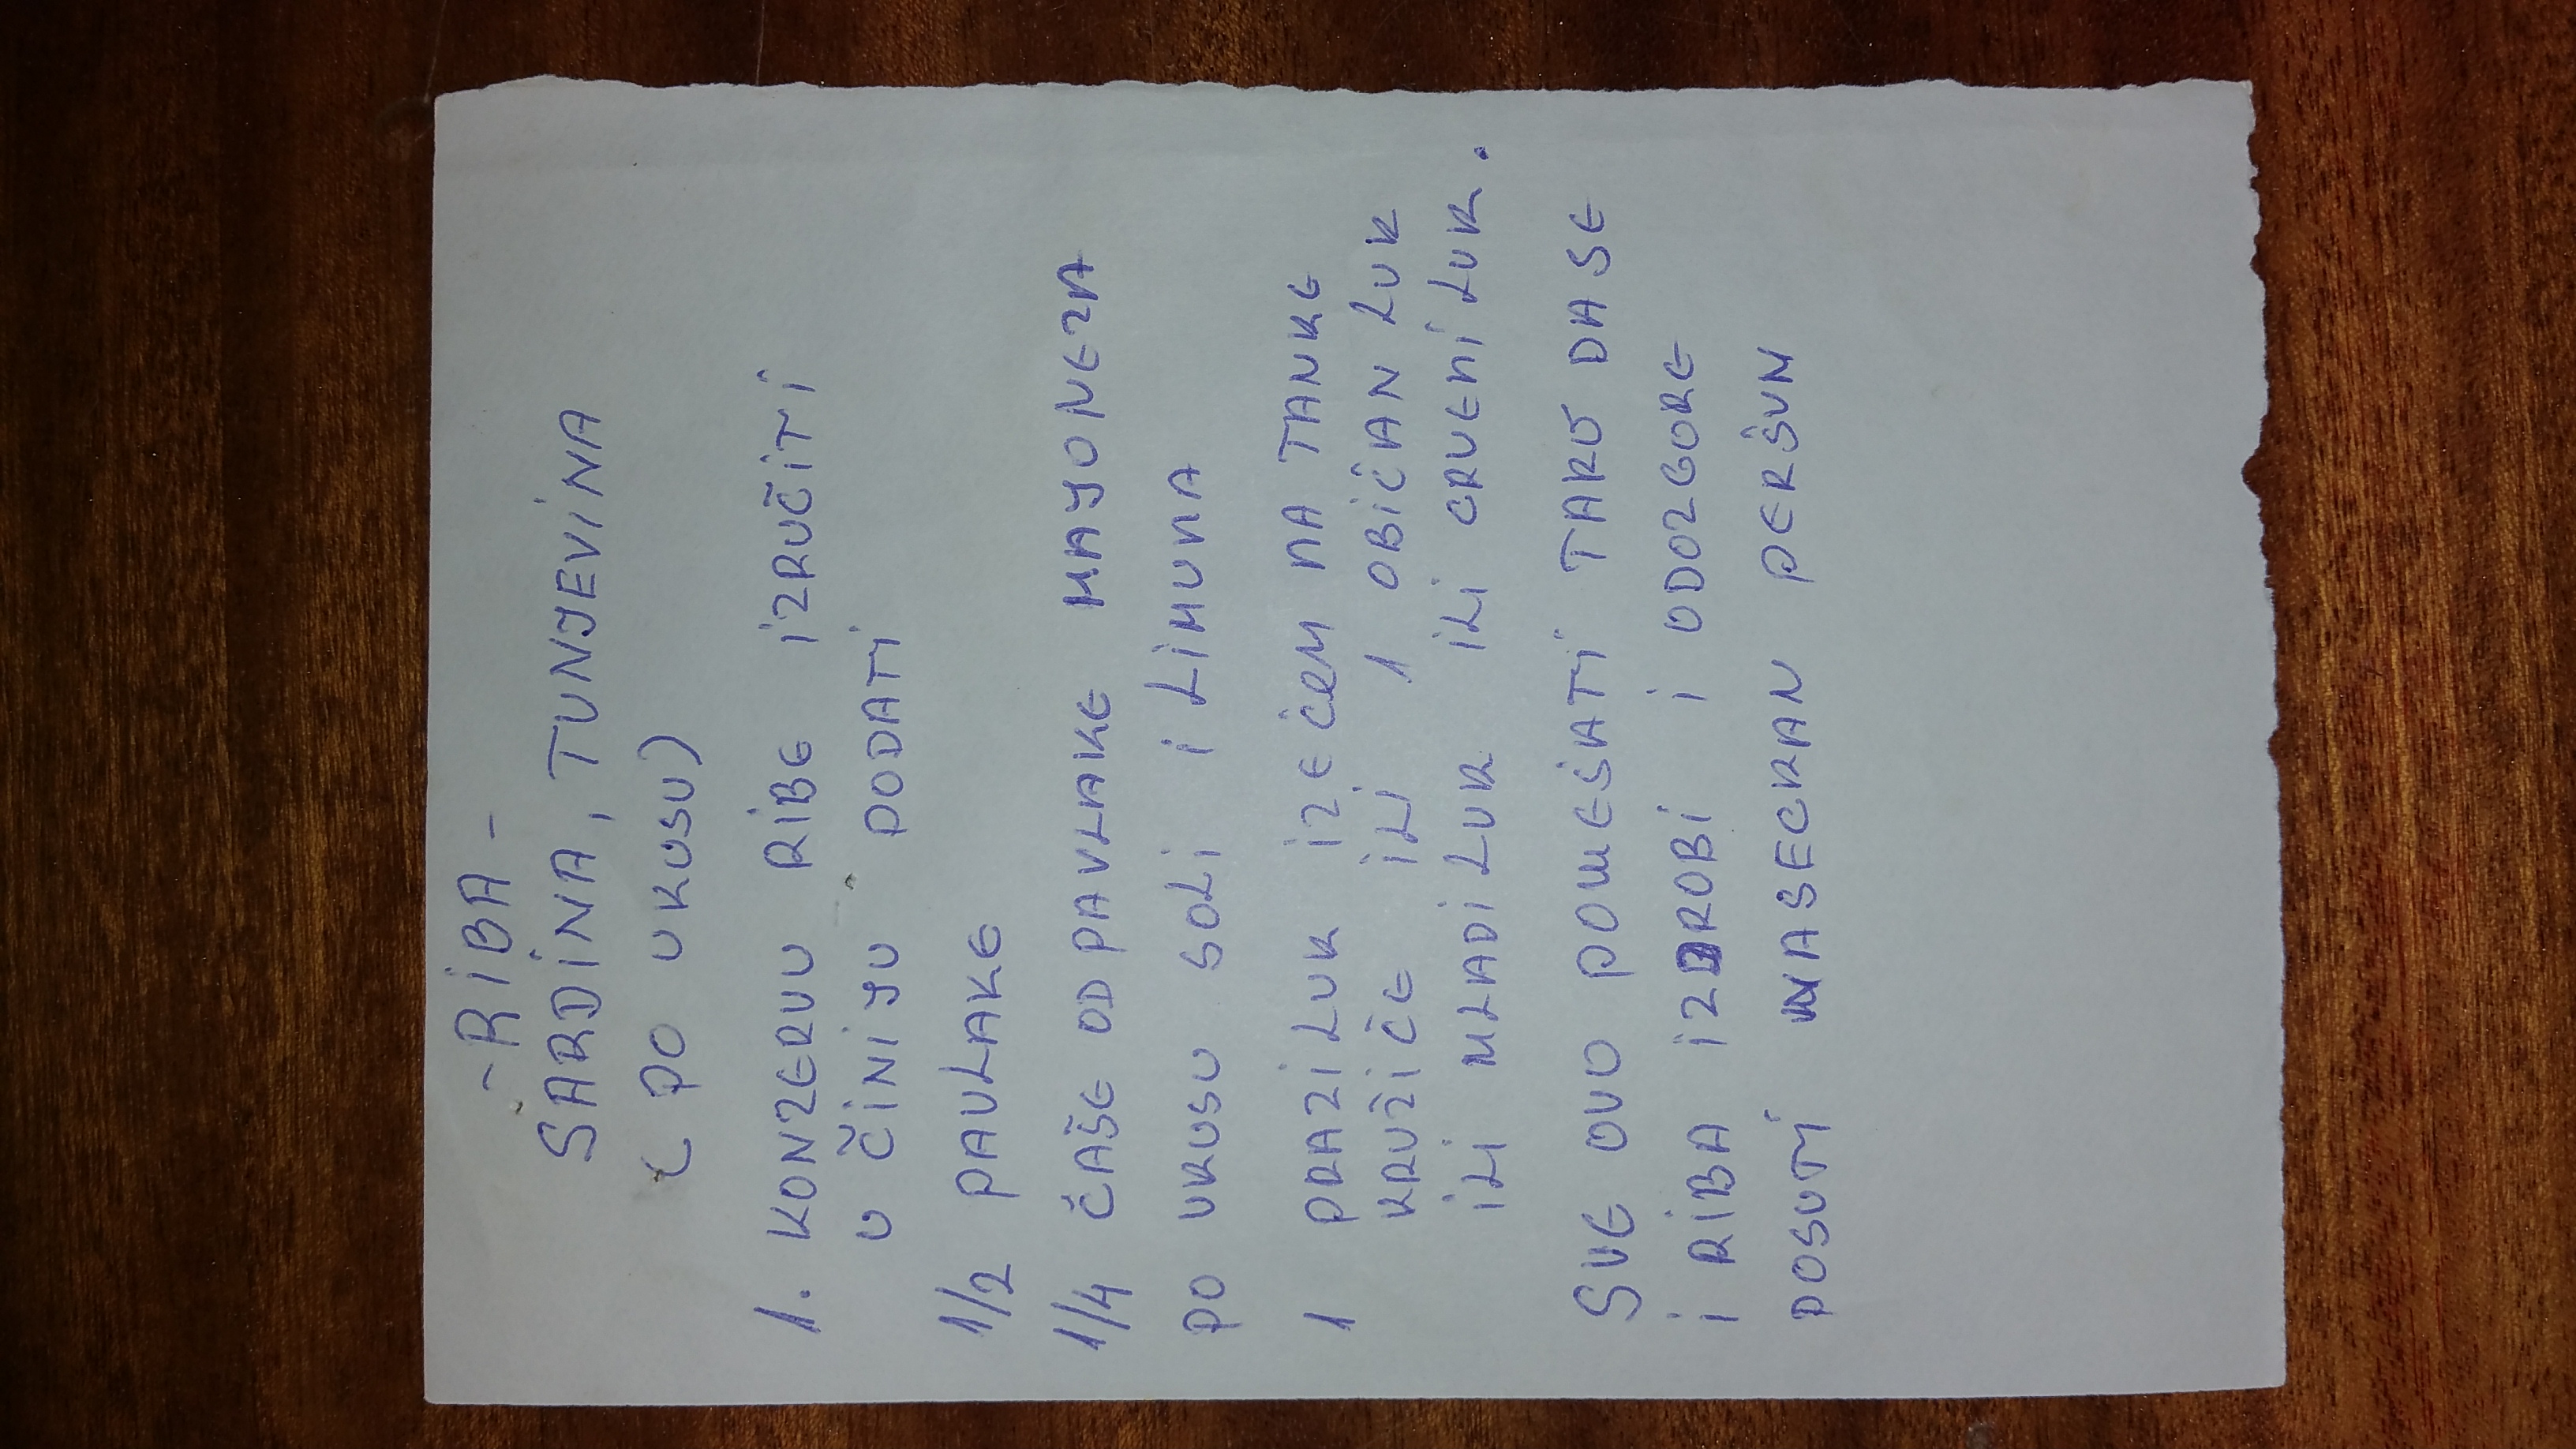 - RIBA -
SARDINA, TUNJEVINA
( PO UKUSU)
1. KONZERVU RIBE IZRUČITI
U ČINIJU PODATI
1/2 PAVLAKE
1/4 ČAŠE OD PAVLAKE MAJONEZA
PO UKUSU SOLI I LIMUNA
1 PRAZI LUK IZEČEN NA TANKE
KRUŽIĆE ILI 1 OBIČAN LUK
ILI MLADI LUK ILI CRVENI LUK.
SVE OVO POMEŠATI TAKO DA SE
I RIBA IZDROBI I ODOZGORE
POSUTI NASECKAN PERŠUN